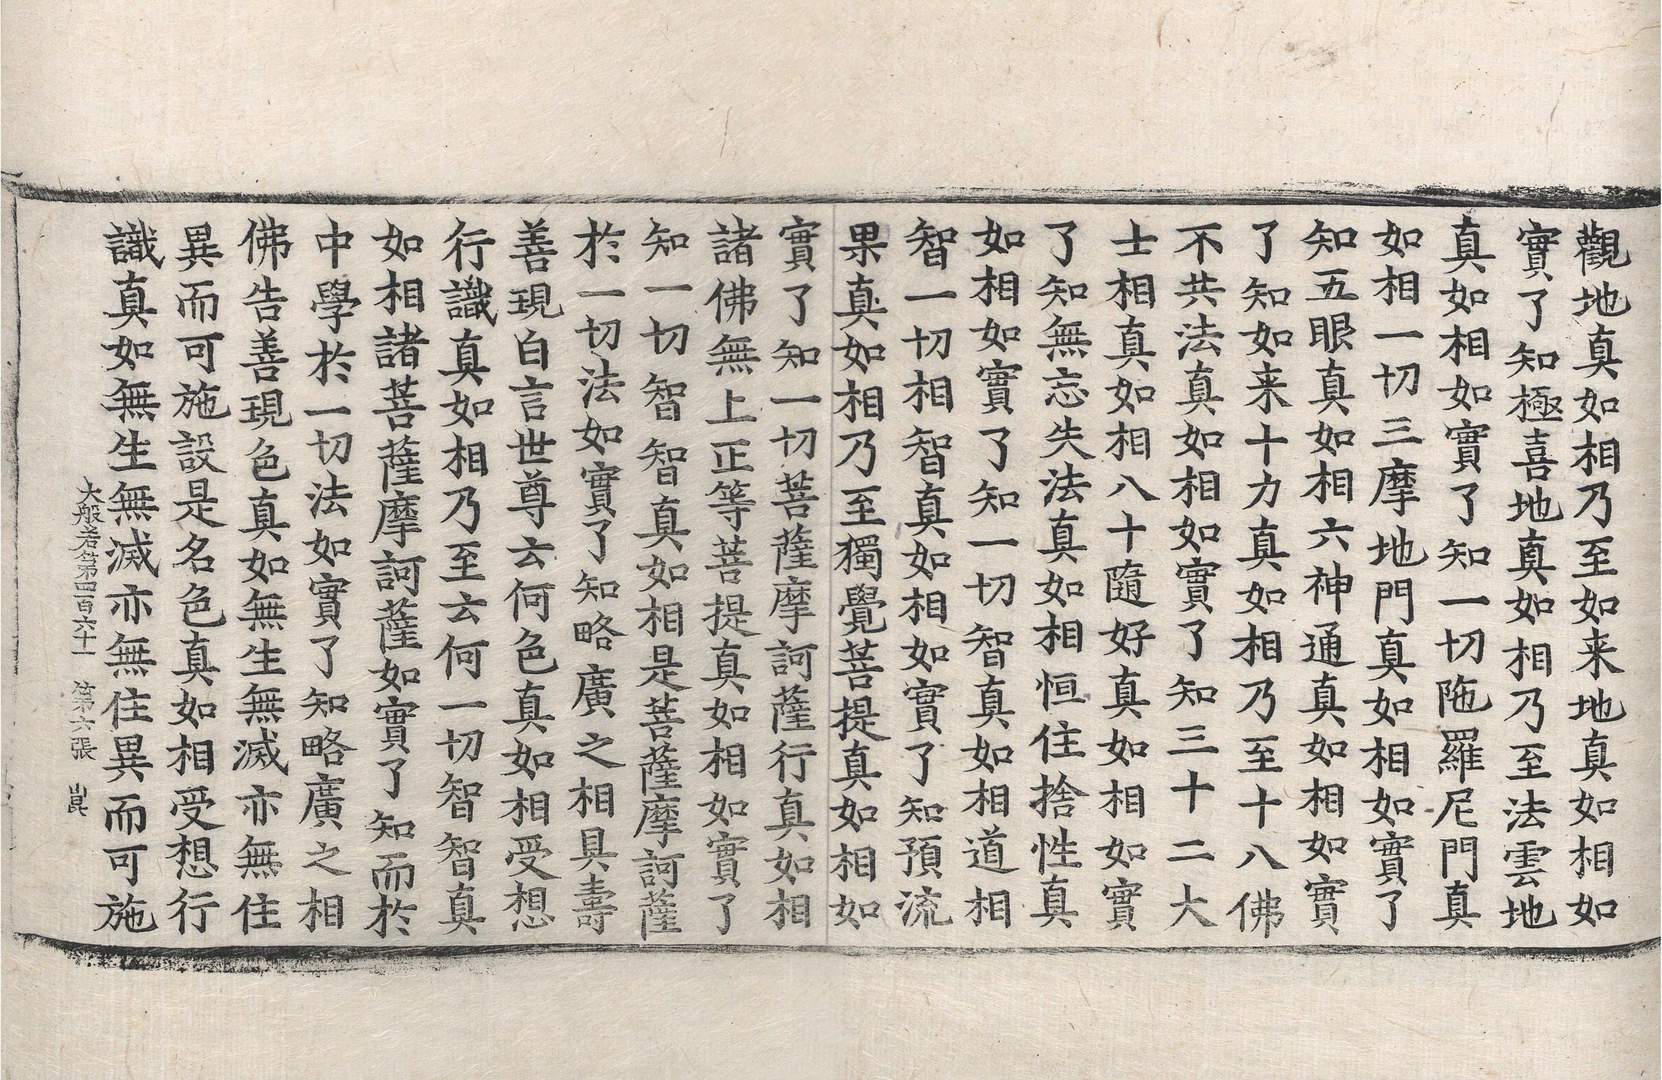 觀地真如相乃至如来地真如相如
實了知極喜地真如相乃至法雲地
真如相如實了知一切陁羅尼門真
如相一切三摩地門真如相如實了
知五眼真如相六神通真如相如實
了知如来十力真如相乃至十八佛
不共法真如相如實了知三十二大
士相真如相八十隨好真如相如實
了知無忘失法真如相恒住捨性真
如相如實了知一切智真如相道相
智一切相智真如相如實了知預流
果真如相乃至獨覺菩提真如相如
實了知一切菩薩摩訶薩行真如相
諸佛無上正等菩提真如相如實了
知一切智智真如相是菩薩摩訶薩
於一切法如實了知略廣之相具壽
善現白言世尊云何色真如相受想
行識真如相乃至云何一切智智真
如相諸菩薩摩訶薩如實了知而於
中學於一切法如實了知略廣之相
佛告善現色真如無生無滅亦無住
異而可施設是名色真如相受想行
識真如無生無滅亦無住異而可施
大般若第四百六十一 第六張 崑